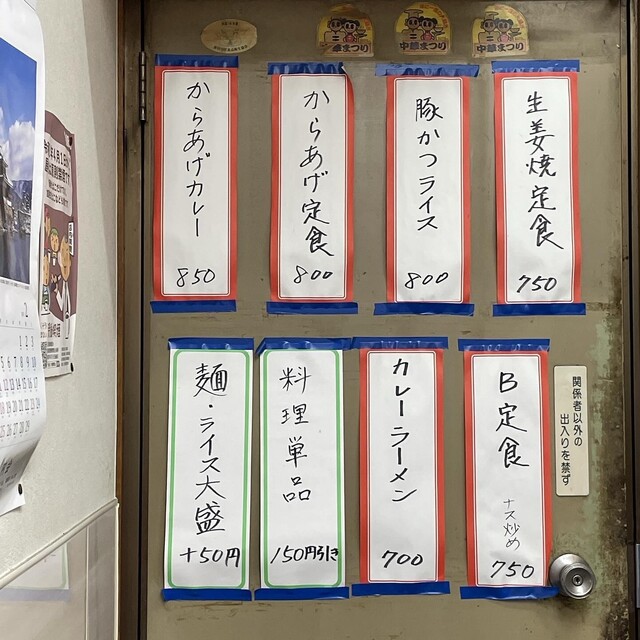 生姜焼定食
750
豚かつライス
800
からあげ定食
800
からあげカレー
850
B定食
ナス炒め
750
カレーラーメン
700
料理単品
150円引き
麺・ライス大盛
+50円
関係者以外の
出入りを禁ず
中華まつり
中華まつり
中華まつり
2